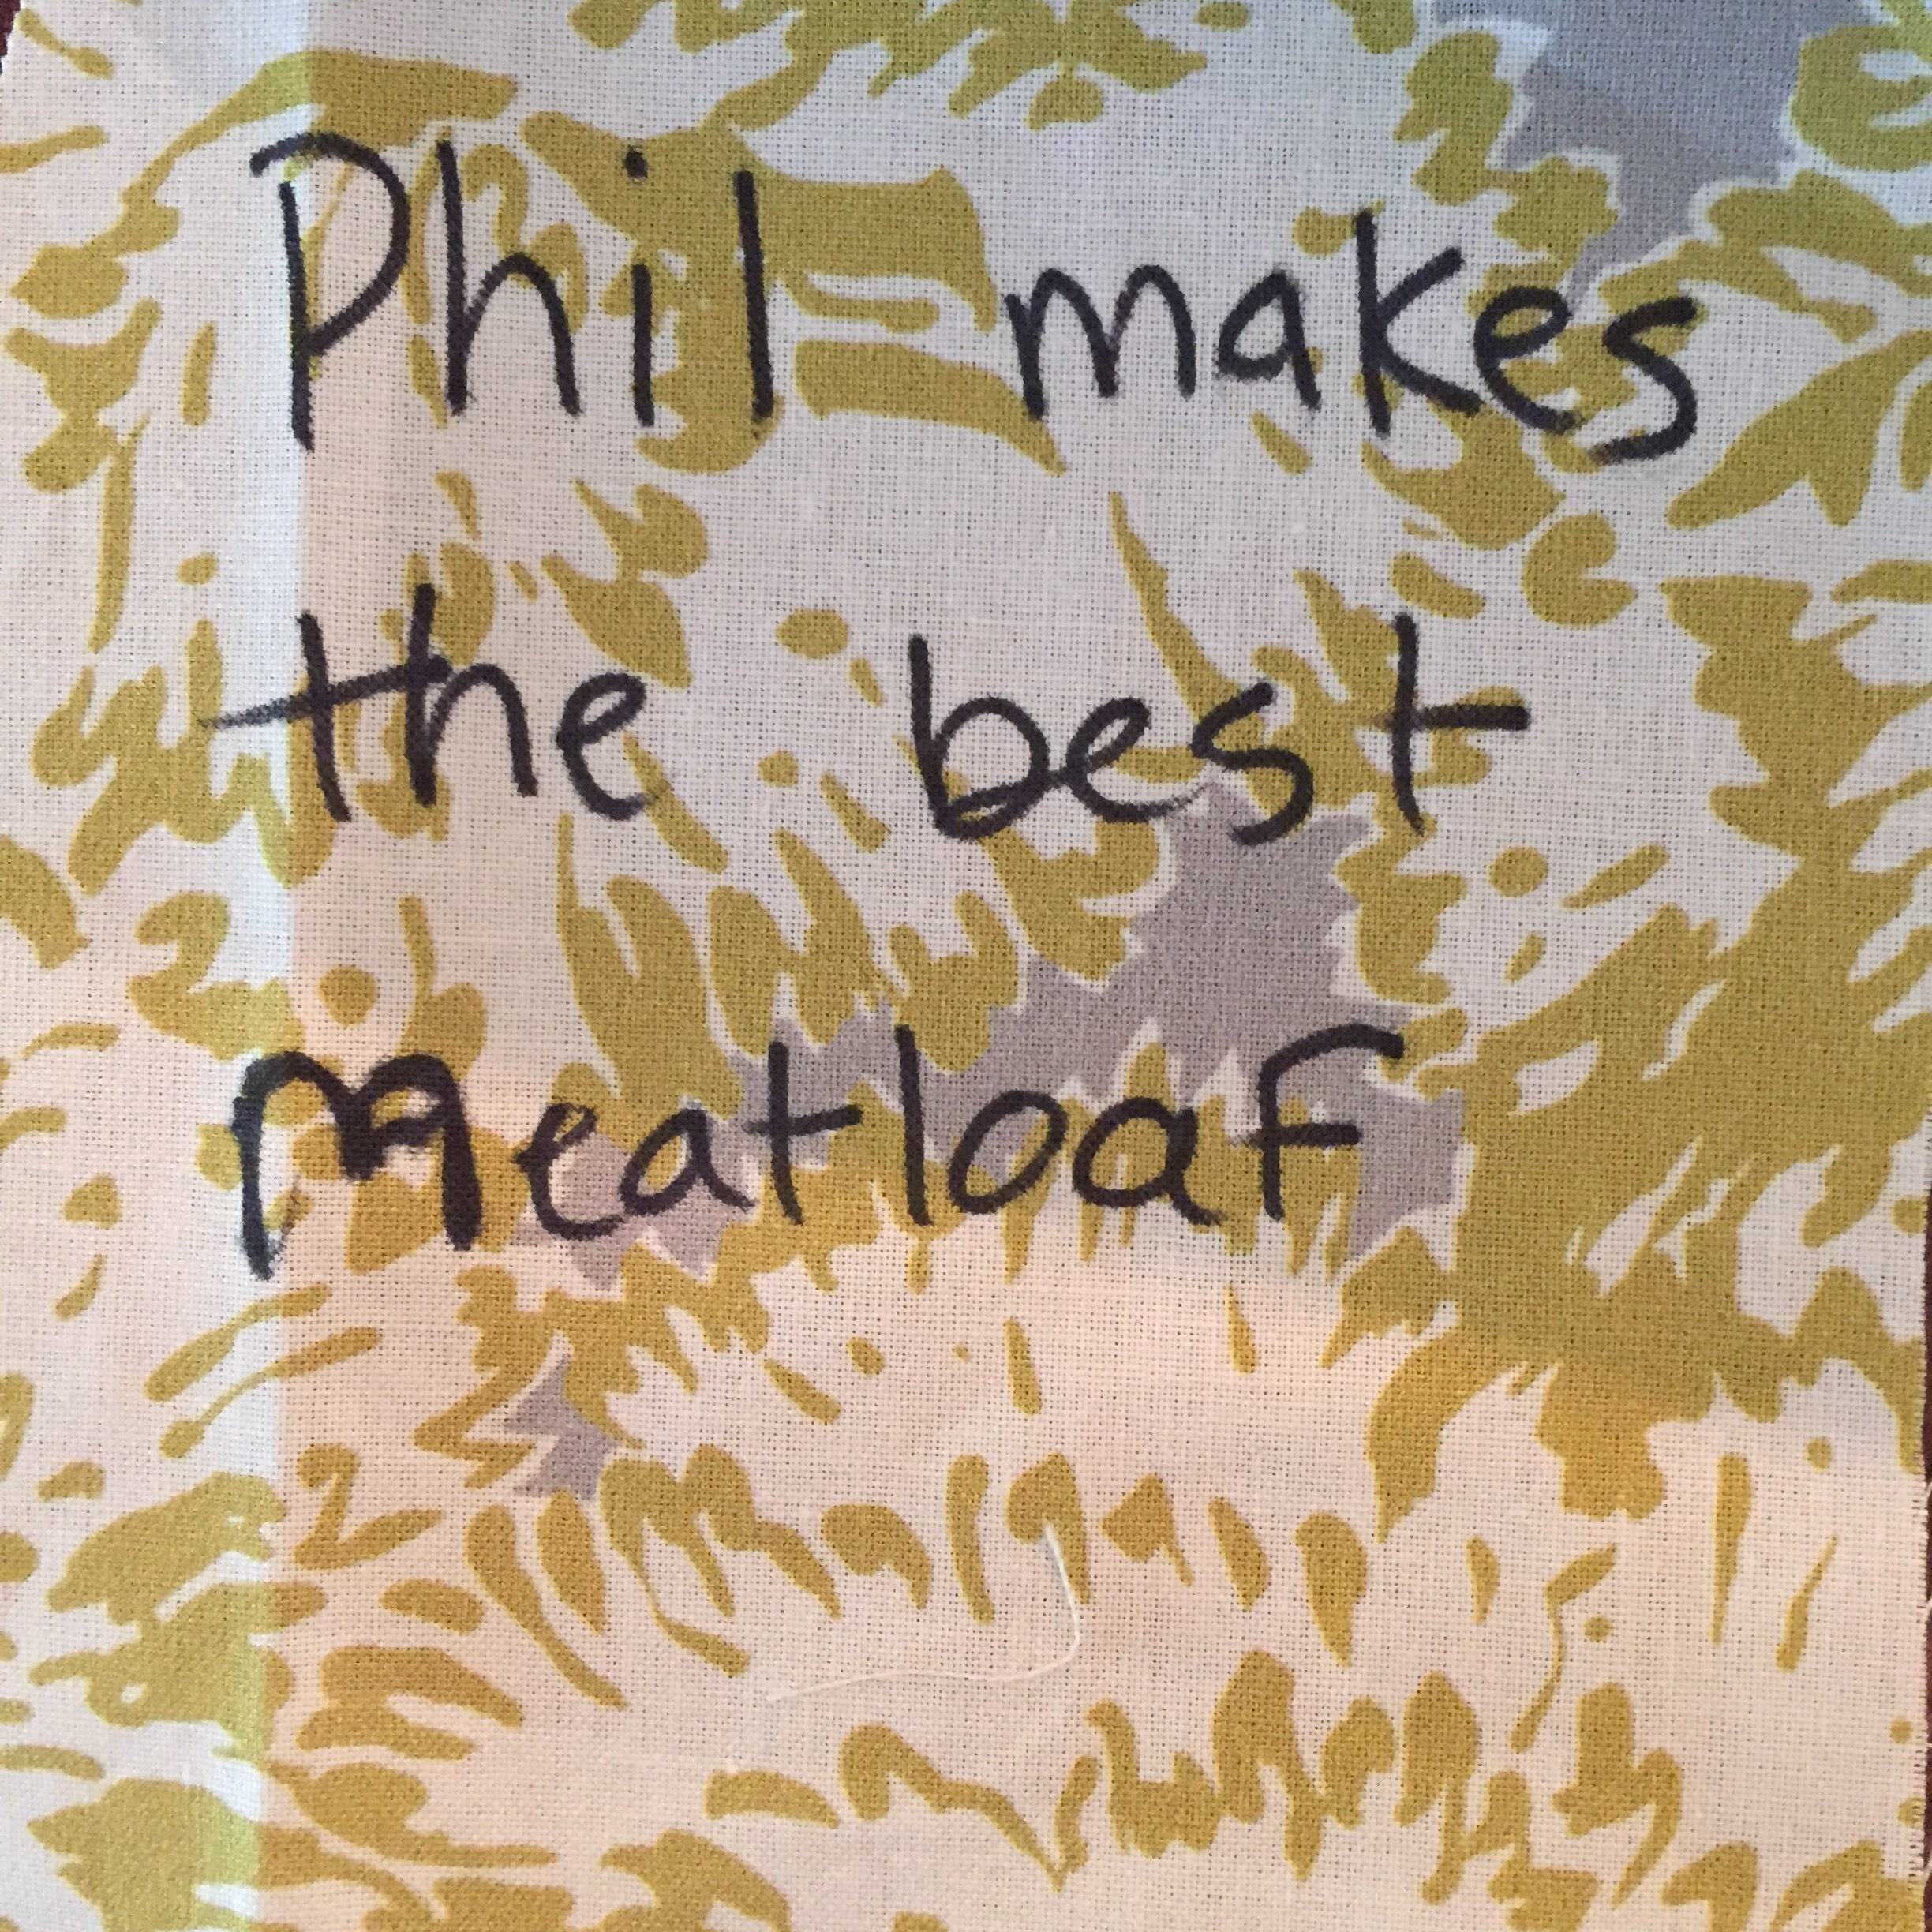 Phil makes
the best
meatloaf